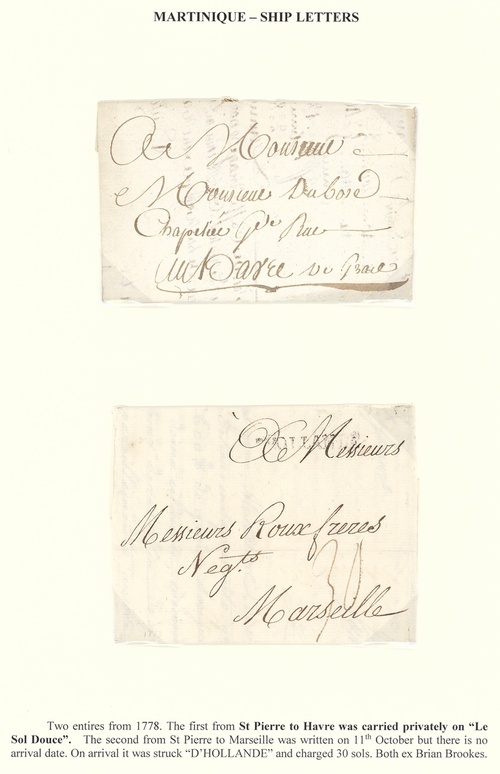 MARTINIQUE – SHIP LETTERS
A Monsieur
Monsieur Dubosc
Chapelier Gde Rue
Au Havre De Grace
À Messieurs
Messieurs Roux freres
Negts
30
Marseille
Two entires from 1778. The first from St Pierre to Havre was carried privately on “Le
Sol Douce”. The second from St Pierre to Marseille was written on 11th October but there is no
arrival date. On arrival it was struck “D’HOLLANDE” and charged 30 sols. Both ex Brian Brookes.